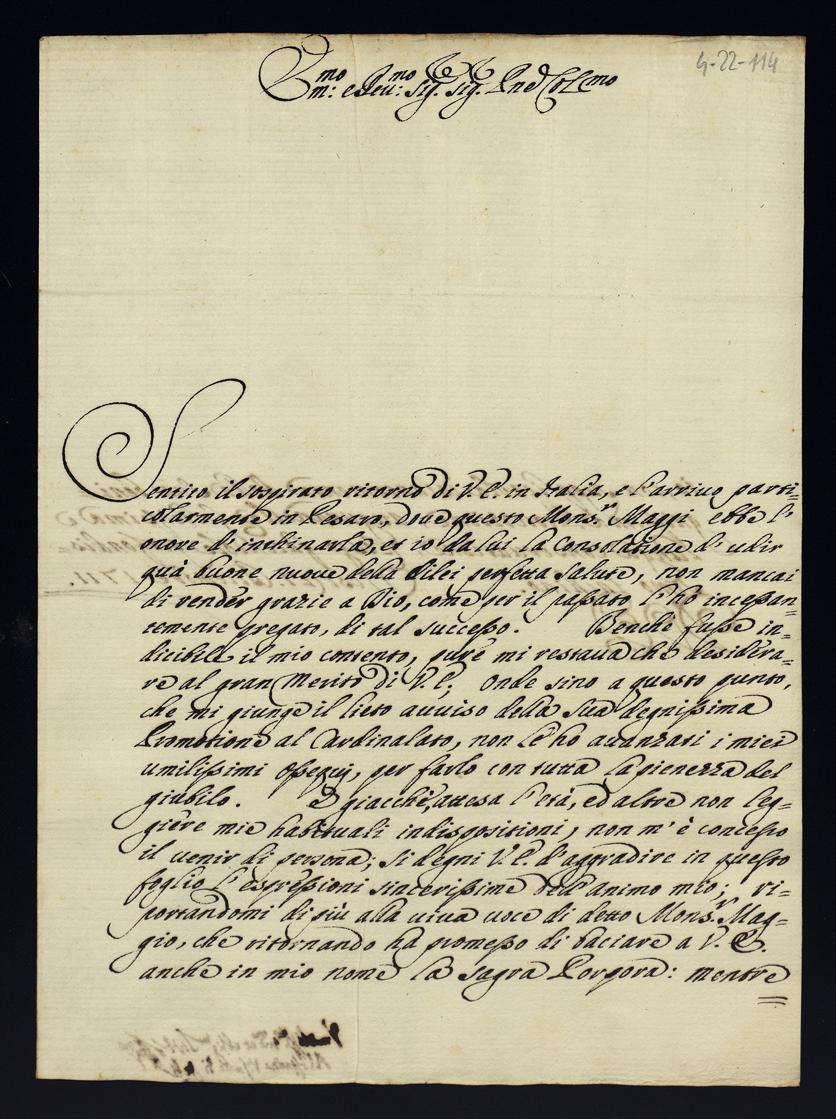 4-22-114
Em:mo e Reu:mo Sig. Sig. Pne Colmo
Sentito il sospirato ritorno di V.E. in Italia, e l'arriuo parti=
colarmente in Pesaro, doue questo Mons.r Maggi ebbe l'
onore d'inchinarla, et io da lui la Consolatione d'udir
quà buone nuoue della dilei perfetta salute, non mancai
di render grazie a Dio, come per il passato l'hò incessan=
temente pregato, di tal successo. Benche fusse in=
dicibile il mio contento, pure mi restaua che desidera=
re al gran Merito di V.E. Onde sino a questo punto,
che mi giunge il lieto auuiso della Sua degnissima
Promotione al Cardinalato, non le hò auanzati i miei
umilissimi ossequij, per farlo con tutta la pienezza del
giubilo. E giacchè, attesa l'età, ed altre non leg=
giere mie habituali indispositioni, non m'è concesso
il uenir di persona; si degni V.E. d'aggradire in questo
foglio l'espressioni sincerissime dell'animo mio; ri=
portandomi di più alla uiua uoce di detto Mons.r Mag=
gio, che ritornando ha promesso di baciare a V.E.
anche in mio nome la sagra Porpora: mentre